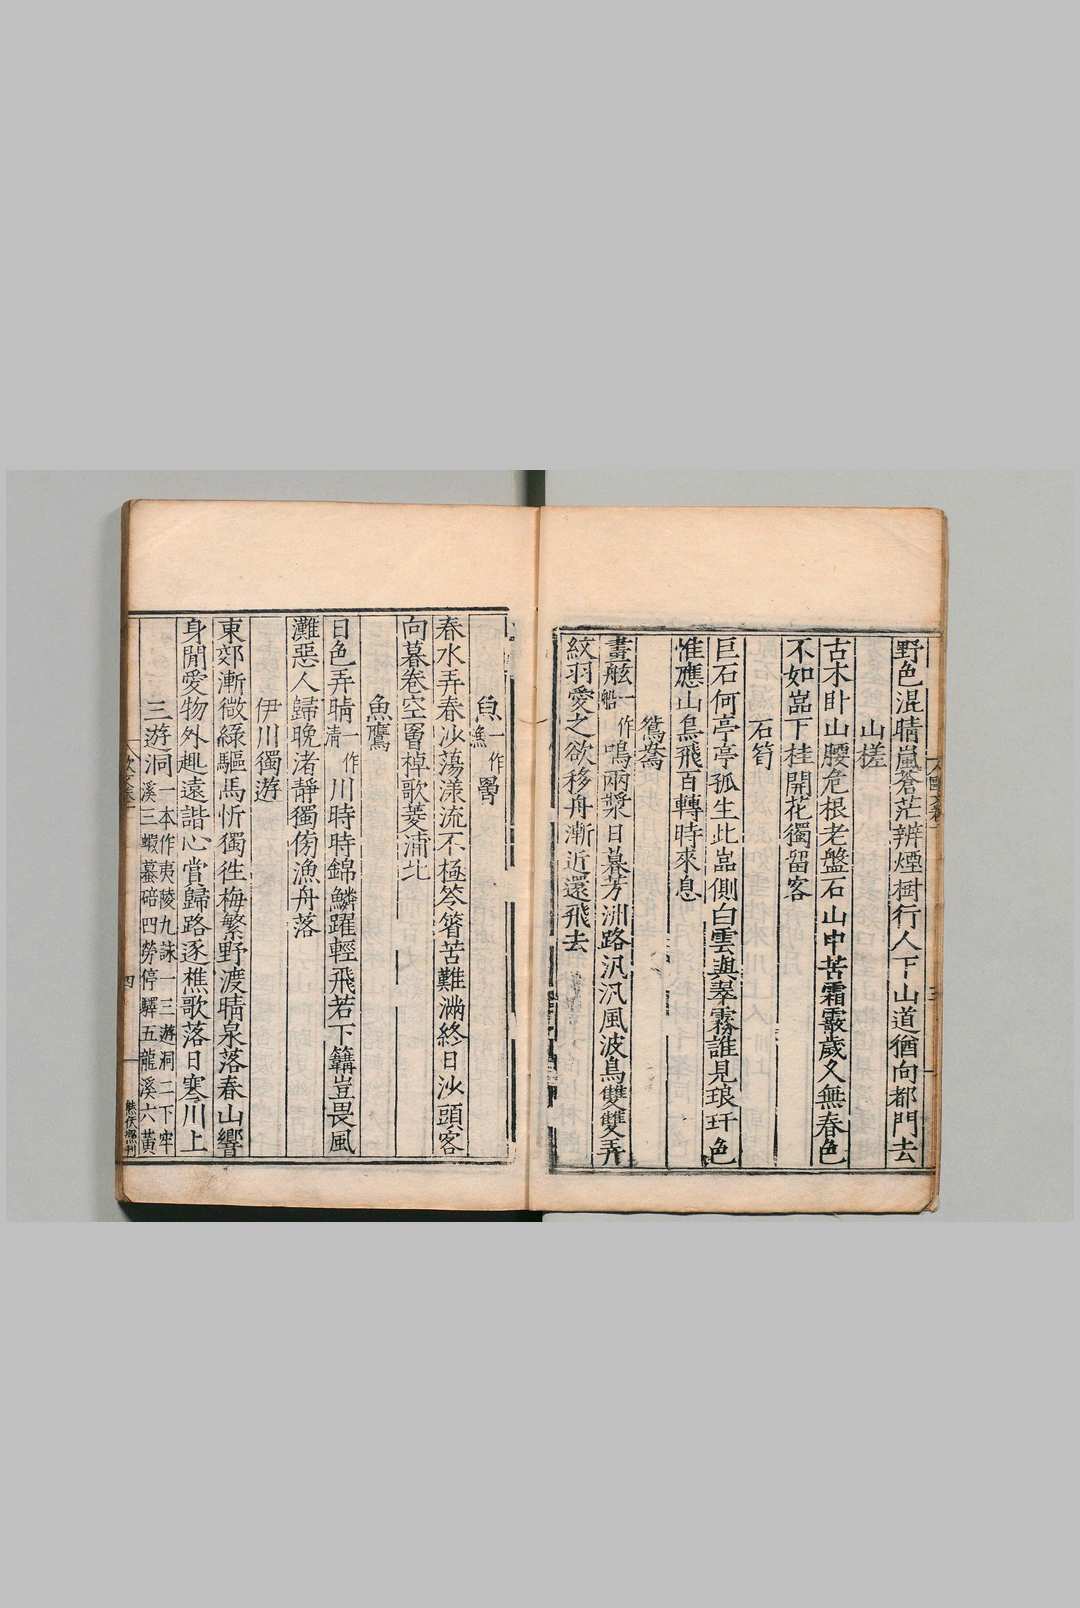 野色混晴嵐蒼茫辨煙樹行人下山道猶向都門去
山槎
古木卧山腰危根老盤石山中苦霜霰歲久無春色
不如嵓下桂開花獨留客
石筍
巨石何亭亭孤生此嵓側白雲與翠霧誰見琅玕色
惟應山鳥飛百轉時來息
鴛鴦
畫舷一作船鳴兩槳日暮芳洲路汎汎風波鳥雙雙弄
紋羽愛之欲移舟漸近還飛去
魚一作漁罾
春水弄春沙蕩漾流不極笭箵苦難滿終日沙頭客
向暮卷空罾棹歌菱浦北
魚鷹
日色弄晴一作清川時時錦鱗躍輕飛若下韝豈畏風
灘惡人歸晚渚靜獨傍漁舟落
伊川獨遊
東郊漸微綠驅馬忻獨徃梅繁野渡晴泉落春山響
身閒愛物外趣遠諧心賞歸路逐樵歌落日寒川上
三遊洞一本作夷陵九詠一三遊洞二下牢溪三蝦蟇碚四勞停驛五龍溪六黃
四